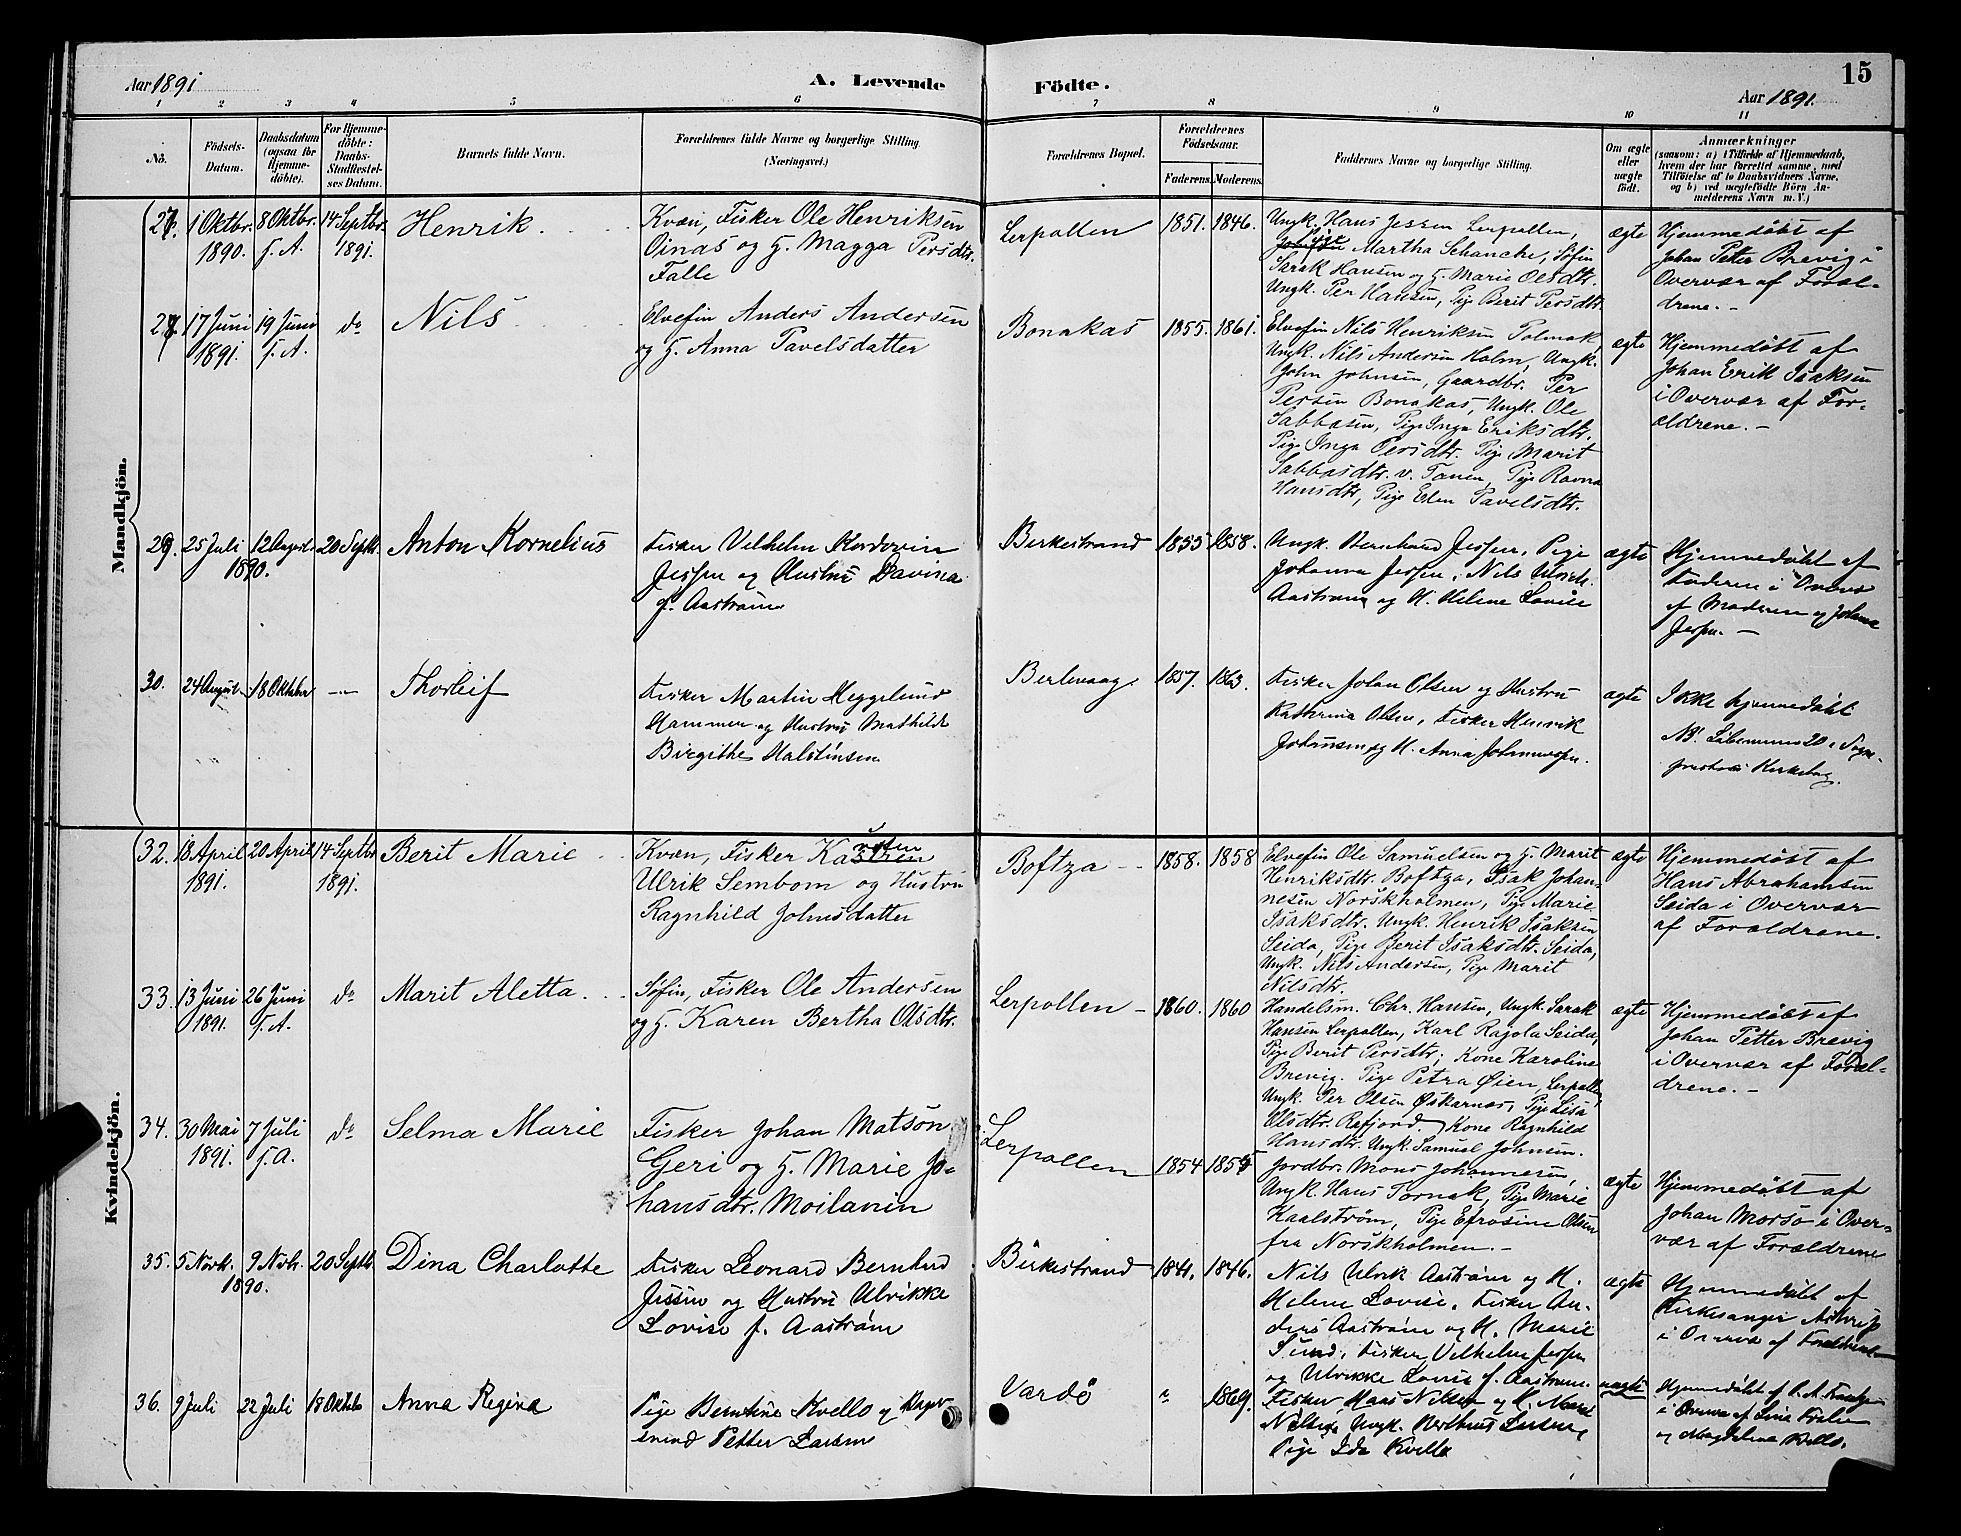 Aar 1891
A. Levende
Födte.
Aar 1891.
15
1 2 3 4 5 6 7 8 9 10 11
No.
Födsels-
Datum.
Daabsdatum
(ogsaa for
Hjemme-
döbte).
For Hjemme-
döbte:
Daabs-
Stadfæstel-
ses Datum.
Barnets fulde Navn.
Forældrenes fulde Navne og borgerlige Stilling.
(Næringsvei.)
Forældrenes Bopæl.
Forældrenes
Födselsaar.
Faderens.
Moderens.
Faddernes Navne og borgerlige Stilling.
Om ægte
eller
uægte
födt.
Anmærkninger
(saasom: a) i Tilfælde af Hjemmedaab,
hvem der har forrettet samme, med
Tilföielse af to Daabsvidners Navne,
og b) ved uægtefödte Börn An-
melderens Navn m. V.)
Mandkjön.
27. 1 Oktbr.
1890.
8 Oktbr.
s. A.
14 Septbr.
1891.
Henrik
Kvæn, Fisker Ole Henriksen
Oinas og H. Magga Persdtr.
Falle
Lerpollen
1851. 1846.
Ungk. Hans Jessen Lerpollen,
Pige Martha Schanche, Söfin
Sarak Hansen og H. Marie Olsdtr.
Ungk. Per Hansen, Pige Berit Persdtr.
ægte
Hjemmedöbt af
Johan Petter Brevig i
Overvær af Foræl-
drene. -
28. 17 Juni
1891.
19 Juni
s. A.
do
Nils
Elvefin Anders Andersen
og H. Anna Pavelsdatter
Bonakas
1855. 1861.
Elvefin Nils Henriksen Polmak,
Ungk. Nils Andersen Holm, Ungk.
John Johnsen, Gaardbr. Per
Persen Bonakas, Ungk. Ole
Sabbasen, Pige Inga Eriksdtr.
Pige Inga Persdtr. Pige Marit
Sabbasdtr. v. Tanen, Pige Ravna
Hansdtr, Pige Elen Pavelsdtr.
ægte
Hjemmedöbt af
Johan Erik Isaksen
i Overvær af For-
ældrene. -
29. 25 Juli
1890.
12 August
20 Septbr.
Anton Kornelius
Fisker Vilhelm
Jessen og Hustru Davina
f. Aaström
Birkestrand
1855 1858.
Ungk. Bernhard Jessen, Pige
Johanna Jessen, Nils Ulrich
Aaström og H. Helene Lovise
ægte
Hjemmedöbt af
Faderen i Overvær
af Moderen og Johanna
Jessen. -
30. 24 August 18 Oktober -
Thorleif
Fisker Martin Heggelund
Hammer og Hustru Mathilde
Birgithe Halstensen
Berlevaag
1857. 1863.
Fisker Johan Olsen og Hustru
Kathrina Olsen, Fisker Henrik
Johansen og H. Anna Johannesen.
ægte
Ikke hjemmedöbt
NB! Löbenummer 20 i Sogne-
prestens Kirkebog.
Kvindekjön.
32. 18 April
1891.
20 April
14 Septbr
1891.
Berit Marie
Kvæn, Fisker Karsten
Ulrik Sembom og Hustru
Ragnhild Johnsdatter
Boftza
1858. 1858
Elvefin Ole Samuelsen og H. Marit
Henriksdtr. Boftza, Isak Johan-
nesen Norskholmen, Pige Marie
Isaksdtr. Ungk. Henrik Isaksen
Seida, Pige Berit Isaksdtr. Seida,
Ungk. Nils Andersen, Pige Marit
Nilsdtr.
ægte
Hjemmedöbt af
Hans Abrahamsen
Seida i Overvær
af Forældrene.
33. 13 Juni
1891.
26 Juni
s. A.
do
Marit Aletta
Söfin, Fisker Ole Andersen
og H. Karen Bertha Olsdtr.
Lerpollen
1860. 1860
Handelsm. Chr. Hansen, Ungk. Sarak
Hansen Lerpollen, Karl Ragola Seida,
Pige Berit Persdtr; Kone Karoline
Brevig. Pige Petra Øien, Lerpollen
Ungk. Per Olsen Øskarnæs, Pige Lisa
Olsdtr. Rafjord. Kone Ragnhild
Hansdtr. Ungk. Samuel Johnsen.
ægte
Hjemmedöbt af
Johan Petter Brevig
i Overvær af Foræl-
drene. -
34. 30 Mai
1891.
7 Juli
s. A.
do
Selma Marie
Fisker Johan Matson
Geri og H. Marie Jo-
hansdtr. Moilanin
Lerpollen
1854 1855
Jordbr. Mons Johannesen,
Ungk. Hans Tornak, Pige Marie
Kaalström, Pige Efrosine Olsen
fra Norskholmen. -
ægte
Hjemmedöbt af
Johan Morsö i Over-
vær af Forældrene
35. 5 Novbr.
1890.
9 Novbr.
20 Septbr.
Dina Charlotte
Fisker Leonard Berntand
Jessen og Hustru Ulrikke
Lovise f. Aaström
Birkestrand
1841. 1846.
Nils Ulrik Aaström og H.
Helene Lovise, Fisker An-
ders Aaström og H. Marie
Sund, Fisker Vilhelm Jessen
og Ulrikke Lovise f. Aaström.
ægte
Hjemmedöbt af
Kirkesanger Astrup
i Overvær af Forældrene
36. 9 Juli 22 Juli 18 Oktober
Anna Regina
Pige Berntine Kvello og Unger-
svend Petter Larsen
Vardö
" 1869.
Fisker Hans Nilsen og H. Marie
Nilsen, Ungk.
Pige Ida Kvello
uægte
Hjemmedöbt af
i Overvær af
og Magdalena Kvello.